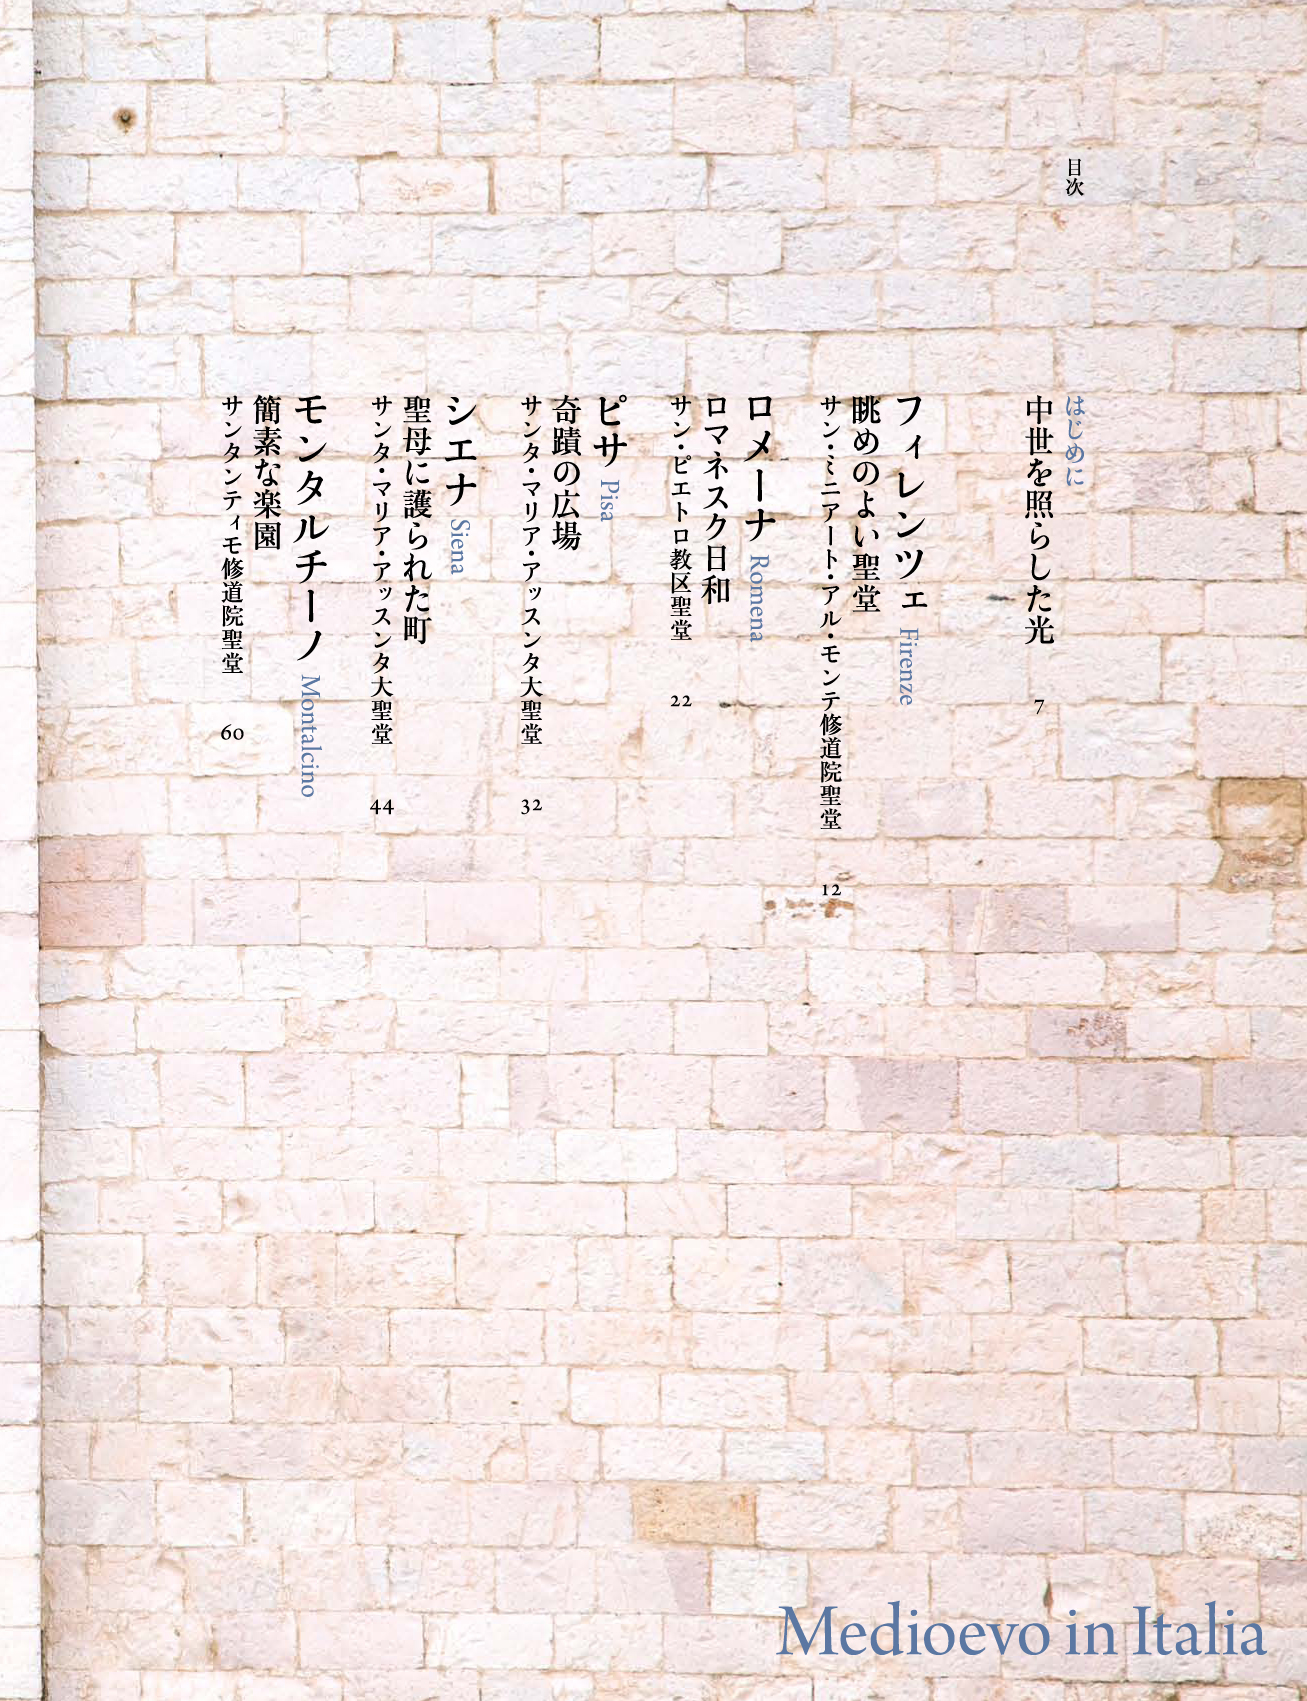 目次
はじめに
中世を照らした光 7
フィレンツェ Firenze
眺めのよい聖堂
サン・ミニアート・アル・モンテ修道院聖堂 12
ロメーナ Romena
ロマネスク日和
サン・ピエトロ教区聖堂 22
ピサ Pisa
奇蹟の広場
サンタ・マリア・アッスンタ大聖堂 32
シエナ Siena
聖母に護られた町
サンタ・マリア・アッスンタ大聖堂 44
モンタルチーノ Montalcino
簡素な楽園
サンタンティモ修道院聖堂 60
Medioevo in Italia